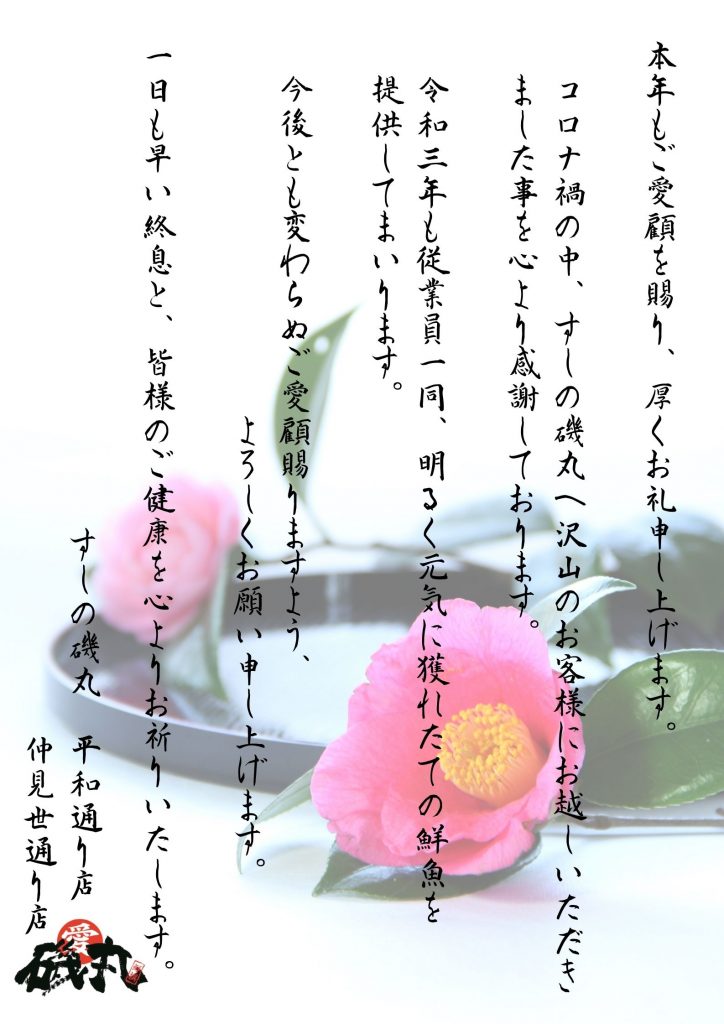 本年もご愛顧を賜り、厚くお礼申し上げます。
コロナ禍の中、すしの磯丸へ沢山のお客様にお越しいただき
ました事を心より感謝しております。
令和三年も従業員一同、明るく元気に獲れたての鮮魚を
提供してまいります。
今後とも変わらぬご愛顧賜りますよう、
よろしくお願い申し上げます。
一日も早い終息と、皆様のご健康を心よりお祈りいたします。
すしの磯丸 平和通り店
仲見世通り店
愛
磯丸